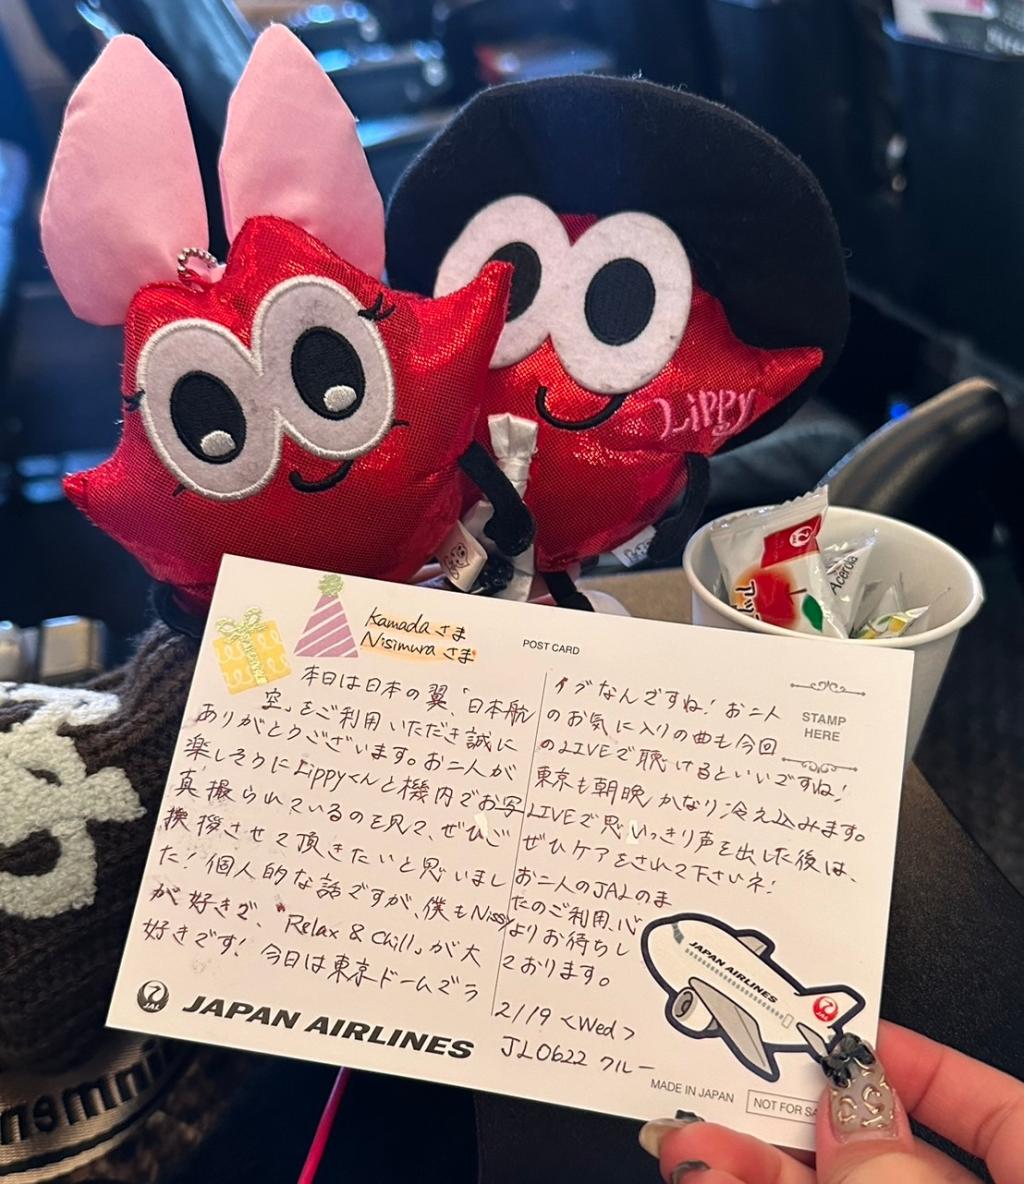 Lippy
JAL
アップ
Acerola
Kamada さま
Nisimura さま
POST CARD
本日は日本の翼、「日本航
空」をご利用いただき誠に
ありがとうございます。お二人が
楽しそうにLippyくんと機内でお写
真撮られているのを見て、ぜひご
挨拶させて頂きたいと思いまし
た!個人的な話ですが、僕もNissy
が好きで、「Relax & Chill」が大
好きです!今日は東京ドームでラ
イブなんですね!お二人
のお気に入りの曲も今回
のLIVEで聴けるといいですね!
東京も朝晩かなり冷え込みます。
LIVEで思いっきり声を出した後は、
ぜひケアをされて下さいネ!
お二人のJALのま
たのご利用、心
よりお待ちし
ております。
2/19 <Wed>
JL0622 クルー
STAMP
HERE
JAPAN AIRLINES
JAL
JAL
JAPAN AIRLINES
MADE IN JAPAN
NOT FOR SA